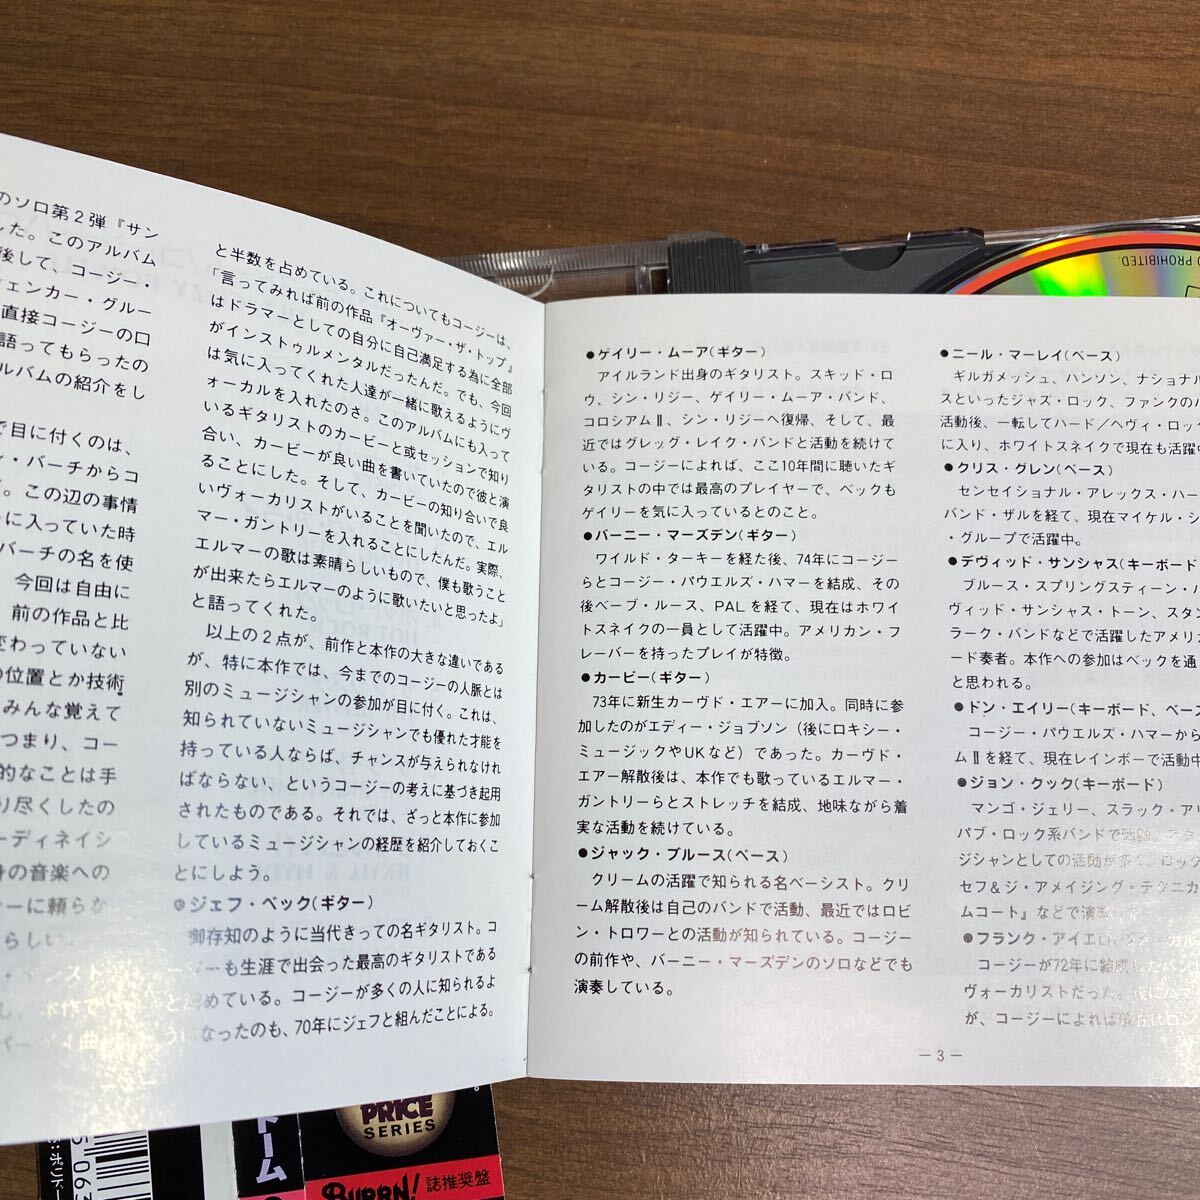 のソロ第2弾『サン
した。このアルバム
後して、コージー・
ェンカー・グルー
直接コージーの口
語ってもらったの
ルバムの紹介をし
で目に付くのは、
ィ・バーチからコ
。この辺の事情
に入っていた時
バーチの名を使
今回は自由に
前の作品と比
変わっていない
の位置とか技術
みんな覚えて
つまり、コー
的なことは手
り尽くしたの
ーディネイシ
身の音楽への
ーに頼らな
らしい。
と半数を占めている。これについてもコージーは、
「言ってみれば前の作品『オーヴァー・ザ・トップ』
はドラマーとしての自分に自己満足する為に全部
がインストゥルメンタルだったんだ。でも、今回
は気に入ってくれた人達が一緒に歌えるようにヴ
ォーカルを入れたのさ。このアルバムにも入って
いるギタリストのカービーと或セッションで知り
合い、カービーが良い曲を書いていたので彼と演
ることにした。そして、カービーの知り合いで良
いヴォーカリストがいることを聞いたので、エル
マー・ガントリーを入れることにしたんだ。実際、
エルマーの歌は素晴らしいもので、僕も歌うこと
が出来たらエルマーのように歌いたいと思ったよ」
と語ってくれた。
以上の2点が、前作と本作の大きな違いである
が、特に本作では、今までのコージーの人脈とは
別のミュージシャンの参加が目に付く。これは、
知られていないミュージシャンでも優れた才能を
持っている人ならば、チャンスが与えられなけれ
ばならない、というコージーの考えに基づき起用
されたものである。それでは、ざっと本作に参加
しているミュージシャンの経歴を紹介しておくこ
とにしよう。
●ジェフ・ベック(ギター)
御存知のように当代きっての名ギタリスト。コ
ージーも生涯で出会った最高のギタリストである
と認めている。コージーが多くの人に知られるよ
うになったのも、70年にジェフと組んだことによる。
●ゲイリー・ムーア(ギター)
アイルランド出身のギタリスト。スキッド・ロ
ウ、シン・リジー、ゲイリー・ムーア・バンド、
コロシアムⅡ、シン・リジーへ復帰、そして、最
近ではグレッグ・レイク・バンドと活動を続けて
いる。コージーによれば、ここ10年間に聴いたギ
タリストの中では最高のプレイヤーで、ベックも
ゲイリーを気に入っているとのこと。
●バーニー・マーズデン(ギター)
ワイルド・ターキーを経た後、74年にコージー
らとコージー・パウエルズ・ハマーを結成、その
後ベーブ・ルース、PALを経て、現在はホワイ
トスネイクの一員として活躍中。アメリカン・フ
レーバーを持ったプレイが特徴。
●カービー(ギター)
73年に新生カーヴド・エアーに加入。同時に参
加したのがエディー・ジョブソン（後にロキシー・
ミュージックやUKなど）であった。カーヴド・
エアー解散後は、本作でも歌っているエルマー・
ガントリーらとストレッチを結成、地味ながら着
実な活動を続けている。
●ジャック・ブルース(ベース)
クリームの活躍で知られる名ベーシスト。クリ
ーム解散後は自己のバンドで活動、最近ではロビ
ン・トロワーとの活動が知られている。コージー
の前作や、バーニー・マーズデンのソロなどでも
演奏している。
●ニール・マーレイ(ベース)
ギルガメッシュ、ハンソン、ナショナル
スといったジャズ・ロック、ファンクのバ
活動後、一転してハード／ヘヴィ・ロッ
に入り、ホワイトスネイクで現在も活躍中
●クリス・グレン(ベース)
センセイショナル・アレックス・ハー
バンド、ザルを経て、現在マイケル・シ
・グループで活躍中。
●デヴィッド・サンシャス(キーボード
ブルース・スプリングスティーン・
ヴィッド・サンシャス・トーン、スタン
ラーク・バンドなどで活躍したアメリ
ード奏者。本作への参加はベックを通
と思われる。
●ドン・エイリー(キーボード、ベース
コージー・パウエルズ・ハマーから
ムⅡを経て、現在レインボーで活動中
●ジョン・クック(キーボード)
マンゴ・ジェリー、スラック・ア
パブ・ロック系バンドで活動。
ジシャンとしての活動が多く、ロッ
セフ&ジ・アメイジング・テクニカ
ムコート』などで演奏した。
●フランク・アイエロ
コージーが72年に結成した
ヴォーカリストだった。後に
が、コージーによれば現在はロン
－3－
O PROHIBITED.
PRICE
SERIES
BURRN!
誌推奨盤
ドーム
ポリドー